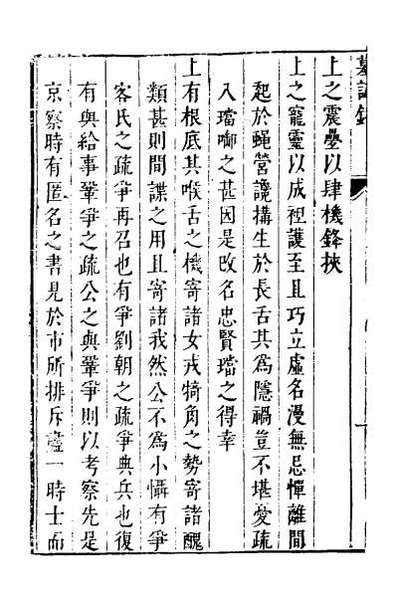 上之震疊以肆機鋒挾
上之寵靈以成裎護至且巧立虛名漫無忌憚離間
起於蝇營讒搆生於長舌其為隱禍豈不堪憂疏
入璫啣之甚因是改名忠賢璫之得幸
上有根底其喉舌之機寄諸女戎犄角之勢寄諸醜
類甚則間諜之用且寄諸我然公不為小懾有爭
客氏之疏爭再召也有爭劉朝之疏爭典兵也復
有與給事鞏爭之疏公之與鞏爭則以考察先是
京察時有匿名之書見於市所排斥盡一時士而